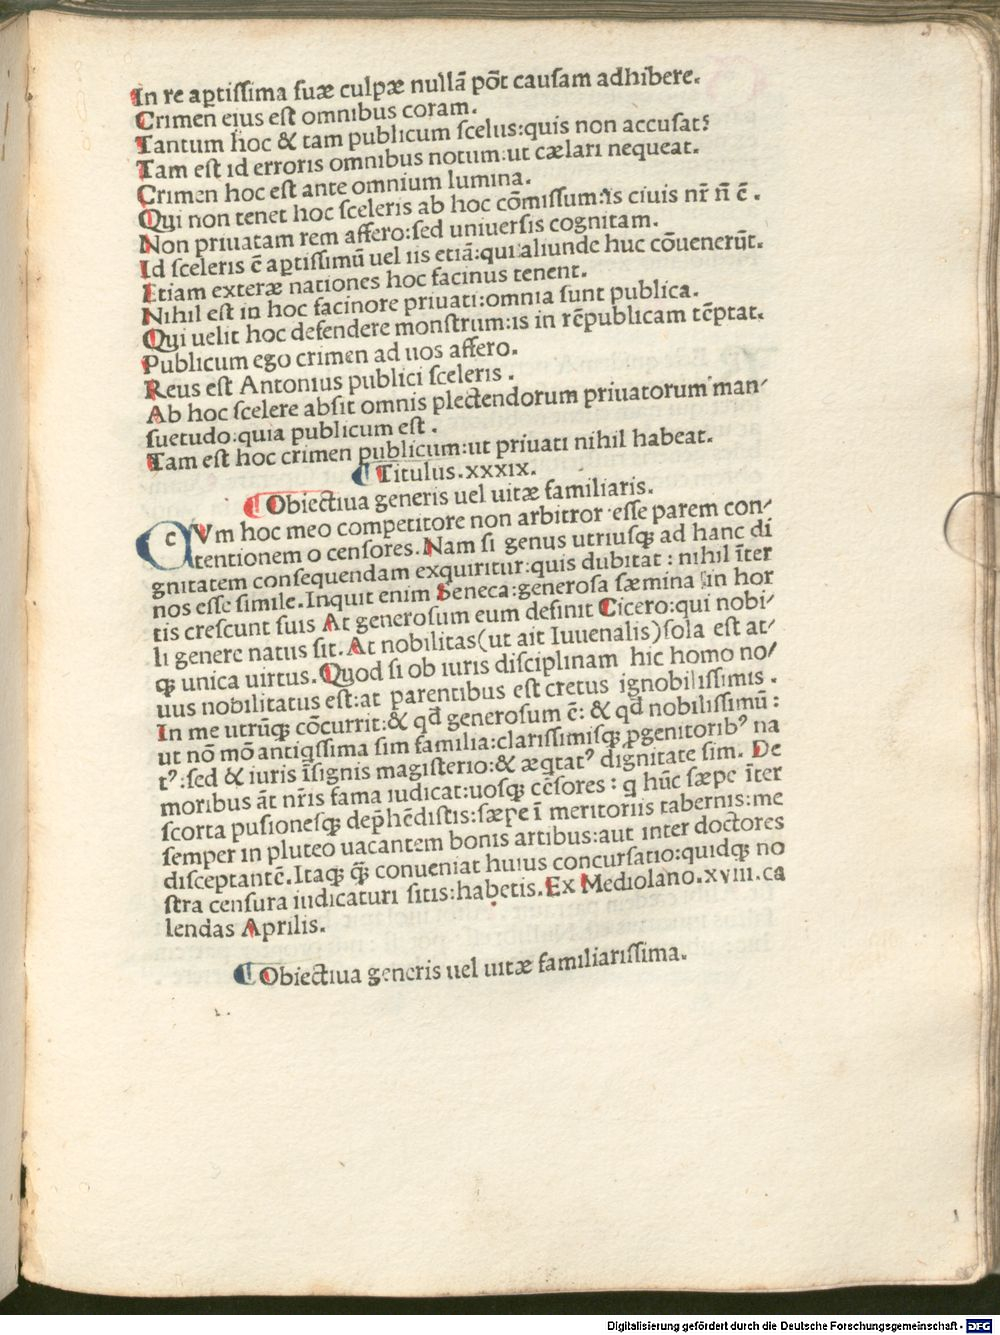 In re aptissima suæ culpæ nullã põt causam adhibere.
Crimen eius est omnibus coram.
Tantum hoc & tam publicum scelus:quis non accusat?
Tam est id erroris omnibus notum:ut cælari nequeat.
Crimen hoc est ante omnium lumina.
Qui non tenet hoc sceleris ab hoc cõmissum:is ciuis nr̃ ñ ẽ.
Non priuatam rem affero:sed uniuersis cognitam.
Id sceleris ẽ aptissimũ uel iis etiã:qui aliunde huc cõuenerũt.
Etiam exteræ nationes hoc facinus tenent.
Nihil est in hoc facinore priuati:omnia sunt publica.
Qui uelit hoc defendere monstrum:is in rẽpublicam tẽptat.
Publicum ego crimen ad uos affero.
Reus est Antonius publici sceleris.
Ab hoc scelere absit omnis plectendorum priuatorum man/
suetudo:quia publicum est.
Tam est hoc crimen publicum:ut priuati nihil habeat.
¶ Titulus.xxxix.
¶ Obiectiua generis uel uitæ familiaris.
c Vm hoc meo competitore non arbitror esse parem con/
tentionem o censores.Nam si genus utriusqꝫ ad hanc di
gnitatem consequendam exquiritur:quis dubitat:nihil ĩter
nos esse simile.Inquit enim Seneca:generosa fæmina in hor
tis crescunt suis At generosum eum definit Cicero:qui nobi/
li genere natus sit.At nobilitas(ut ait Iuuenalis)sola est at/
qꝫ unica uirtus.Quod si ob iuris disciplinam hic homo no/
uus nobilitatus est:at parentibus est cretus ignobilissimis.
In me utrũqꝫ cõcurrit:& qđ generosum ẽ:& qđ nobilissimũ:
ut nõ mõ antiqssima sim familia:clarissimisqꝫ ꝓgenitoribꝰ na
tꝰ:sed & iuris ĩsignis magisterio:& æqtatꝰ dignitate sim. De
moribus ãt nr̃is fama iudicat:uosqꝫ cẽsores:q hũc sæpe ĩter
scorta pusionesqꝫ dep̃hẽdistis:sæpe ĩ meritoriis tabernis:me
semper in pluteo uacantem bonis artibus:aut inter doctores
disceptantẽ.Itaqꝫ q̃ꝫ conueniat huius concursatio:quidqꝫ no
stra censura iudicaturi sitis:habetis.Ex Mediolano.xviii.ca
lendas Aprilis.
¶ Obiectiua generis uel uitæ familiarissima.
Digitalisierung gefördert durch die Deutsche Forschungsgemeinschaft - DFG